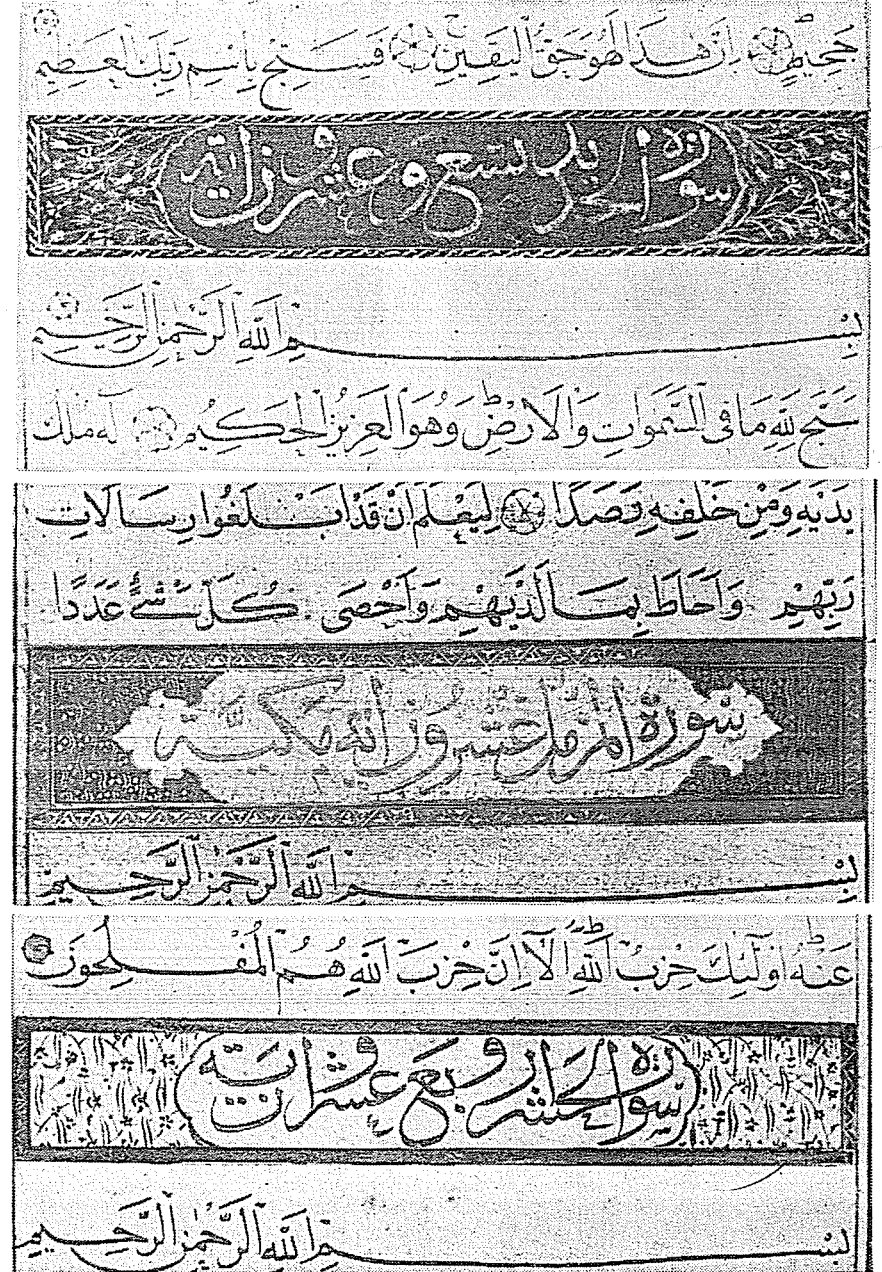 جَحِيمٍ اِنَّ هٰذَا لَهُوَ حَقُّ الْيَقِينِ فَسَبِّحْ بِاسْمِ رَبِّكَ الْعَظِيمِ
سورة الحديد تسع وعشرون اية
بِسْمِ اللّٰهِ الرَّحْمٰنِ الرَّحِيمِ
سَبَّحَ لِلّٰهِ مَا فِى السَّمٰوَاتِ وَالْاَرْضِ وَهُوَ الْعَزِيزُ الْحَكِيمُ لَهُ مُلْكُ
يَدَيْهِ وَمِنْ خَلْفِهِ رَصَدًا لِيَعْلَمَ اَنْ قَدْ اَبْلَغُوا رِسَالَاتِ
رَبِّهِمْ وَاَحَاطَ بِمَا لَدَيْهِمْ وَاَحْصٰى كُلَّ شَىْءٍ عَدَدًا
سورة المزمل عشرون اية مكية
بِسْمِ اللّٰهِ الرَّحْمٰنِ الرَّحِيمِ
عَنْهُ اُولٰئِكَ حِزْبُ اللّٰهِ اَلَا اِنَّ حِزْبَ اللّٰهِ هُمُ الْمُفْلِحُونَ
سورة الحشر اربع وعشرون اية
بِسْمِ اللّٰهِ الرَّحْمٰنِ الرَّحِيمِ